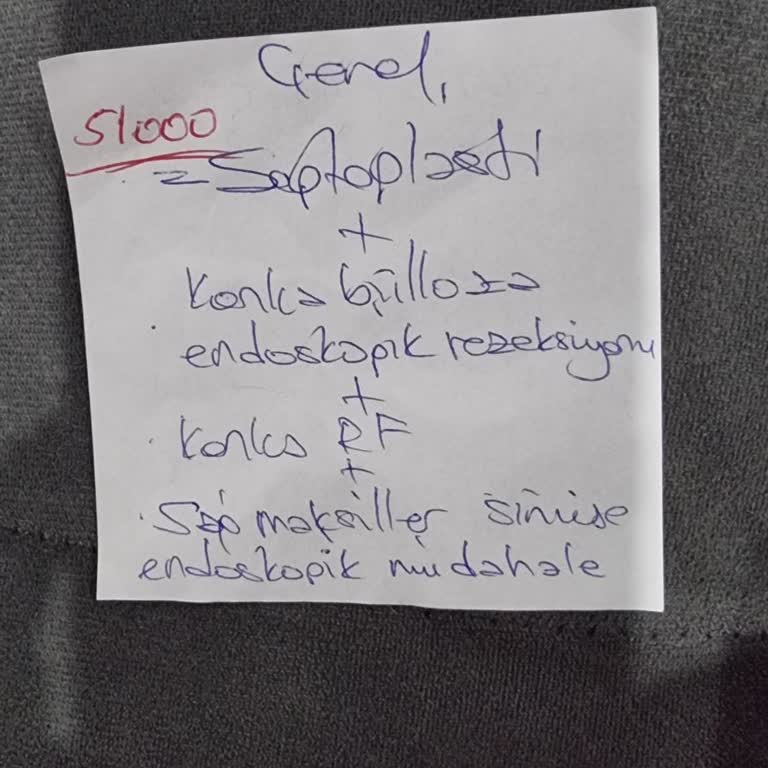 Genel,
51000
= Septoplasti
+
Konka bülloza
endoskopik rezeksiyonu
+
Konka RF
+
Sağ maksiller sinüse
endoskopik müdahale